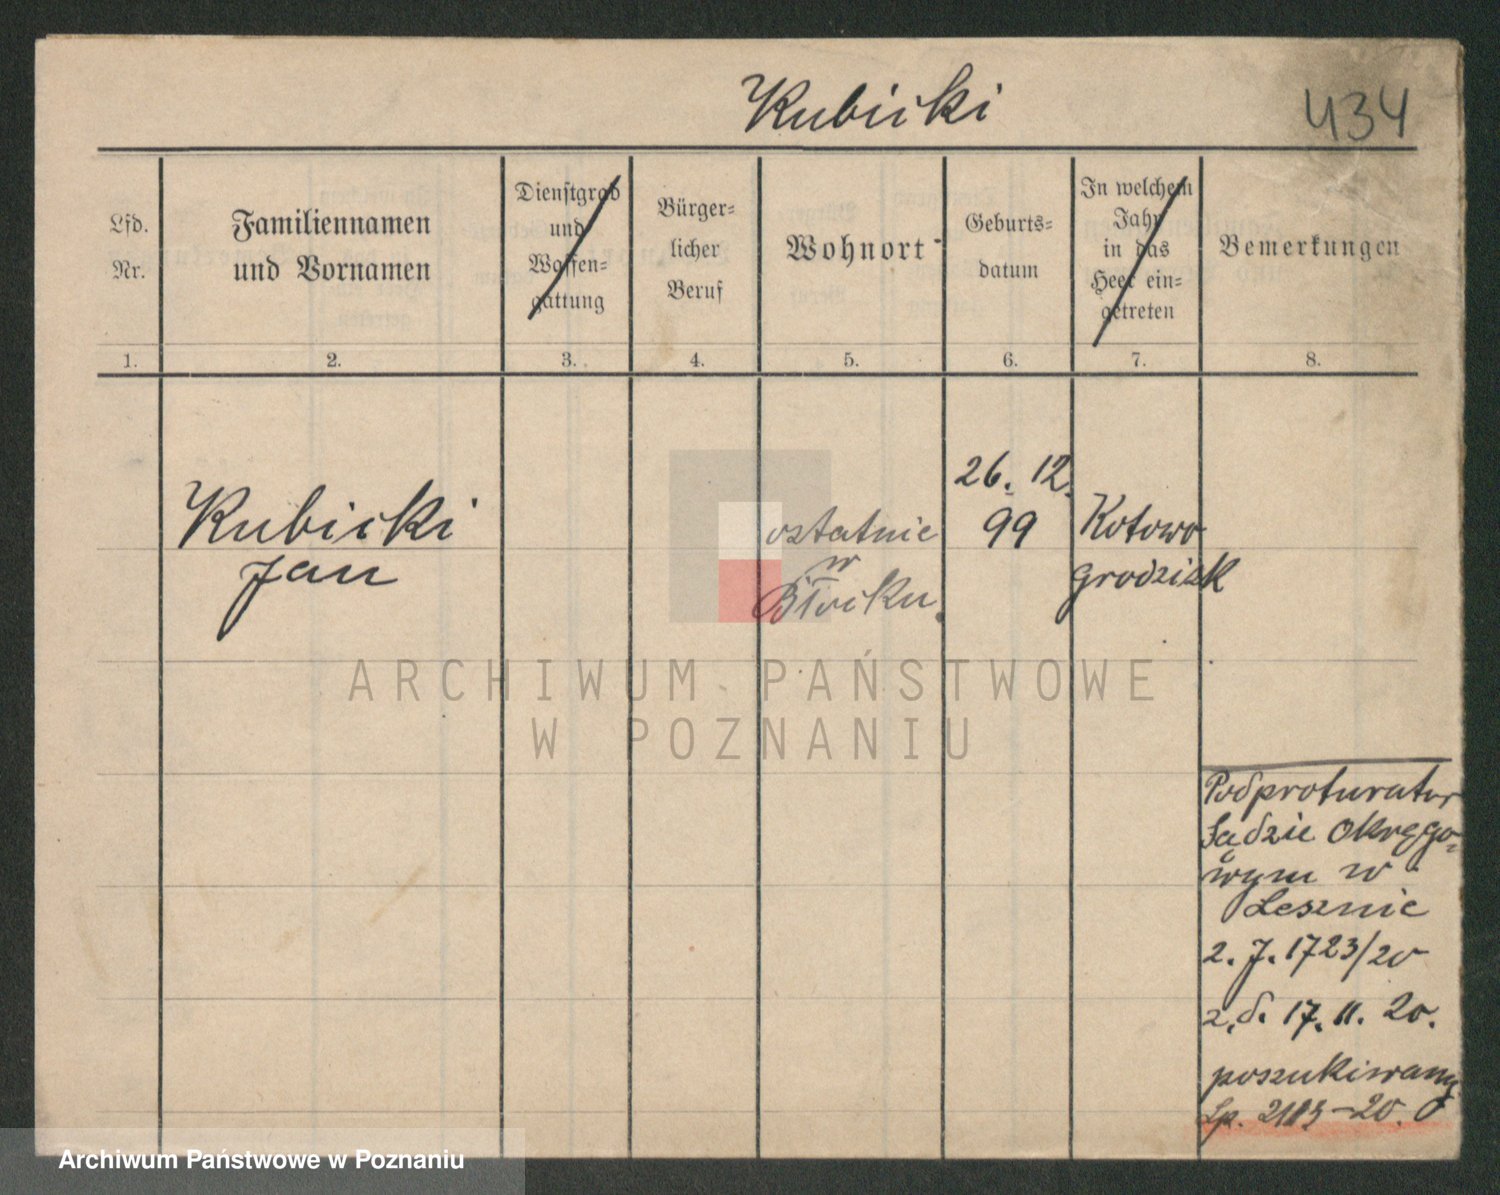 Kubicki
434
Lfd.
Nr.
Familiennamen
und Vornamen
Dienstgrad
und
Waffen-
gattung
Bürger-
licher
Beruf
Wohnort
Geburts-
datum
In welchem
Jahr
in das
Heer ein-
getreten
Bemerkungen
1. 2. 3. 4. 5. 6. 7. 8.
Kubicki
Jan
ostatnie
w
Błocku.
26. 12.
99
Kotowo
Grodzisk
Podprokurator
Sądzie Okręgo-
wym w
Lesznie
2. J. 1723/20
z. d. 17. 11. 20.
poszukiwany
Lp. 2183-20.
ARCHIWUM PAŃSTWOWE
W POZNANIU
Archiwum Państwowe w Poznaniu